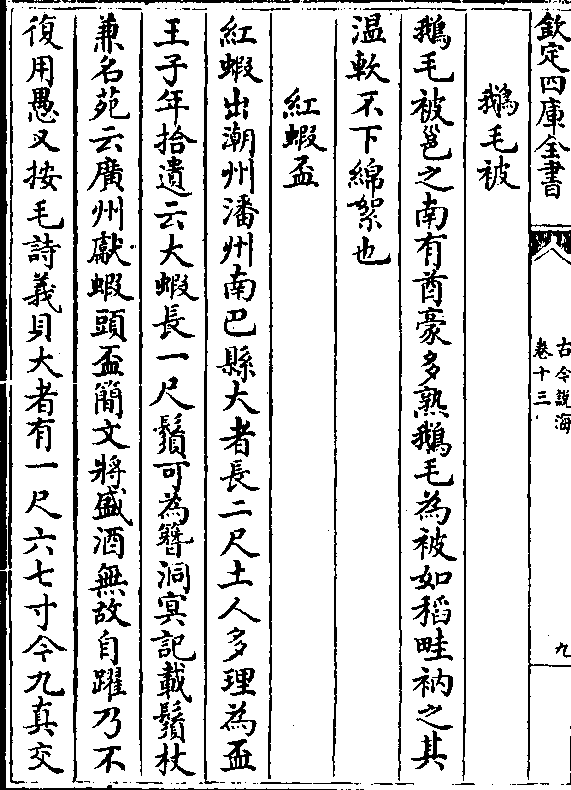 欽定四庫全書
古今說海
卷十三
九
鵝毛被
鵝毛被邕之南有酋豪多熟鵝毛為被如稻畦衲之其
温軟不下綿絮也
紅蝦盃
紅蝦出潮州潘州南巴縣大者長二尺土人多理為盃
王子年拾遺云大蝦長一尺鬚可為簪洞冥記載鬚杖
兼名苑云廣州獻蝦頭盃簡文將盛酒無故自躍乃不
復用愚又按毛詩義貝大者有一尺六七寸今九真交